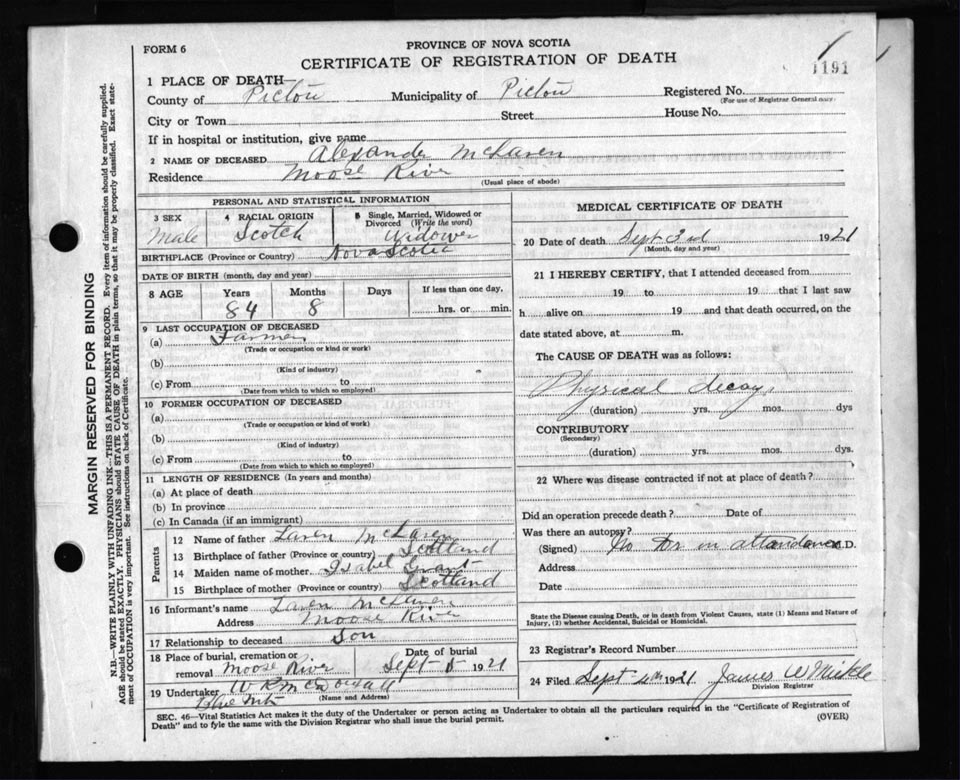 FORM 6
PROVINCE OF NOVA SCOTIA
CERTIFICATE OF REGISTRATION OF DEATH
1191
1 PLACE OF DEATH—
County of Pictou Municipality of Pictou Registered No.
(For use of Registrar General only)
City or Town Street House No.
If in hospital or institution, give name
2 NAME OF DECEASED Alexander McLaren
Residence Moose River
(Usual place of abode)
PERSONAL AND STATISTICAL INFORMATION
3 SEX 4 RACIAL ORIGIN 5 Single, Married, Widowed or Divorced (Write the word)
Male Scotch Widower
BIRTHPLACE (Province or Country) Nova Scotia
DATE OF BIRTH (month, day and year)
8 AGE Years Months Days If less than one day,
84 8 hrs. or min.
9 LAST OCCUPATION OF DECEASED
(a) Farmer
(Trade or occupation or kind or work)
(b)
(Kind of industry)
(c) From to
(Date from which to which so employed)
10 FORMER OCCUPATION OF DECEASED
(a)
(Trade or occupation or kind of work)
(b)
(Kind of industry)
(c) From to
(Date from which to which so employed)
11 LENGTH OF RESIDENCE (In years and months)
(a) At place of death
(b) In province
(c) In Canada (if an immigrant)
Parents
12 Name of father Laren McLaren
13 Birthplace of father (Province or country) Scotland
14 Maiden name of mother Isabel Grant
15 Birthplace of mother (Province or country) Scotland
16 Informant's name Laren McLaren
Address Moose River
17 Relationship to deceased Son
18 Place of burial, cremation or removal Moose River Date of burial Sept 5 1921
19 Undertaker W R
(Name and Address)
MEDICAL CERTIFICATE OF DEATH
20 Date of death Sept 3rd 1921
(Month, day and year)
21 I HEREBY CERTIFY, that I attended deceased from
19 to 19 that I last saw
h alive on 19 and that death occurred, on the
date stated above, at m.
The CAUSE OF DEATH was as follows:
Physical decay
(duration) yrs. mos. dys
CONTRIBUTORY
(Secondary)
(duration) yrs. mos. dys.
22 Where was disease contracted if not at place of death?
Did an operation precede death? Date of
Was there an autopsy?
(Signed) No Dr in attendance M.D.
Address
Date
State the Disease causing Death, or in death from Violent Causes, state (1) Means and Nature of
Injury, (2) whether Accidental, Suicidal or Homicidal.
23 Registrar's Record Number
24 Filed Sept 4th 1921 James W Mickle
Division Registrar
SEC. 46—Vital Statistics Act makes it the duty of the Undertaker or person acting as Undertaker to obtain all the particulars required in the "Certificate of Registration of
Death" and to fyle the same with the Division Registrar who shall issue the burial permit.
(OVER)
MARGIN RESERVED FOR BINDING
N.B.—WRITE PLAINLY WITH UNFADING INK—THIS IS A PERMANENT RECORD. Every item of information should be carefully supplied.
AGE should be stated EXACTLY. PHYSICIANS should STATE CAUSE OF DEATH in plain terms, so that it may be properly classified. Exact state-
ment of OCCUPATION is very important. See instructions on back of Certificate.